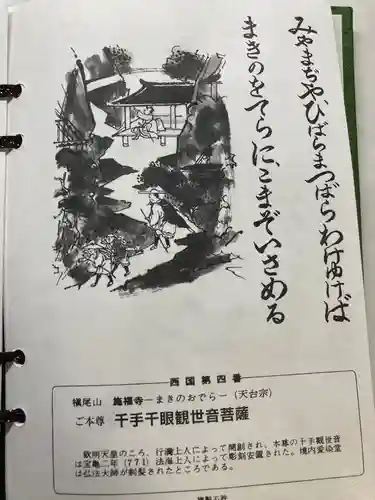 みやまぢやひばらまつばらわけゆけば
まきのをてらにこまぞいさめる
西国第四番
槇尾山 施福寺―まきのおでら―(天台宗)
ご本尊 千手千眼観世音菩薩
欽明天皇のころ、行満上人によって開創され、本尊の千手観世音
は宝亀二年(771)法海上人によって彫刻安置された。境内愛染堂
は弘法大師が剃髪されたところである。
複製不許